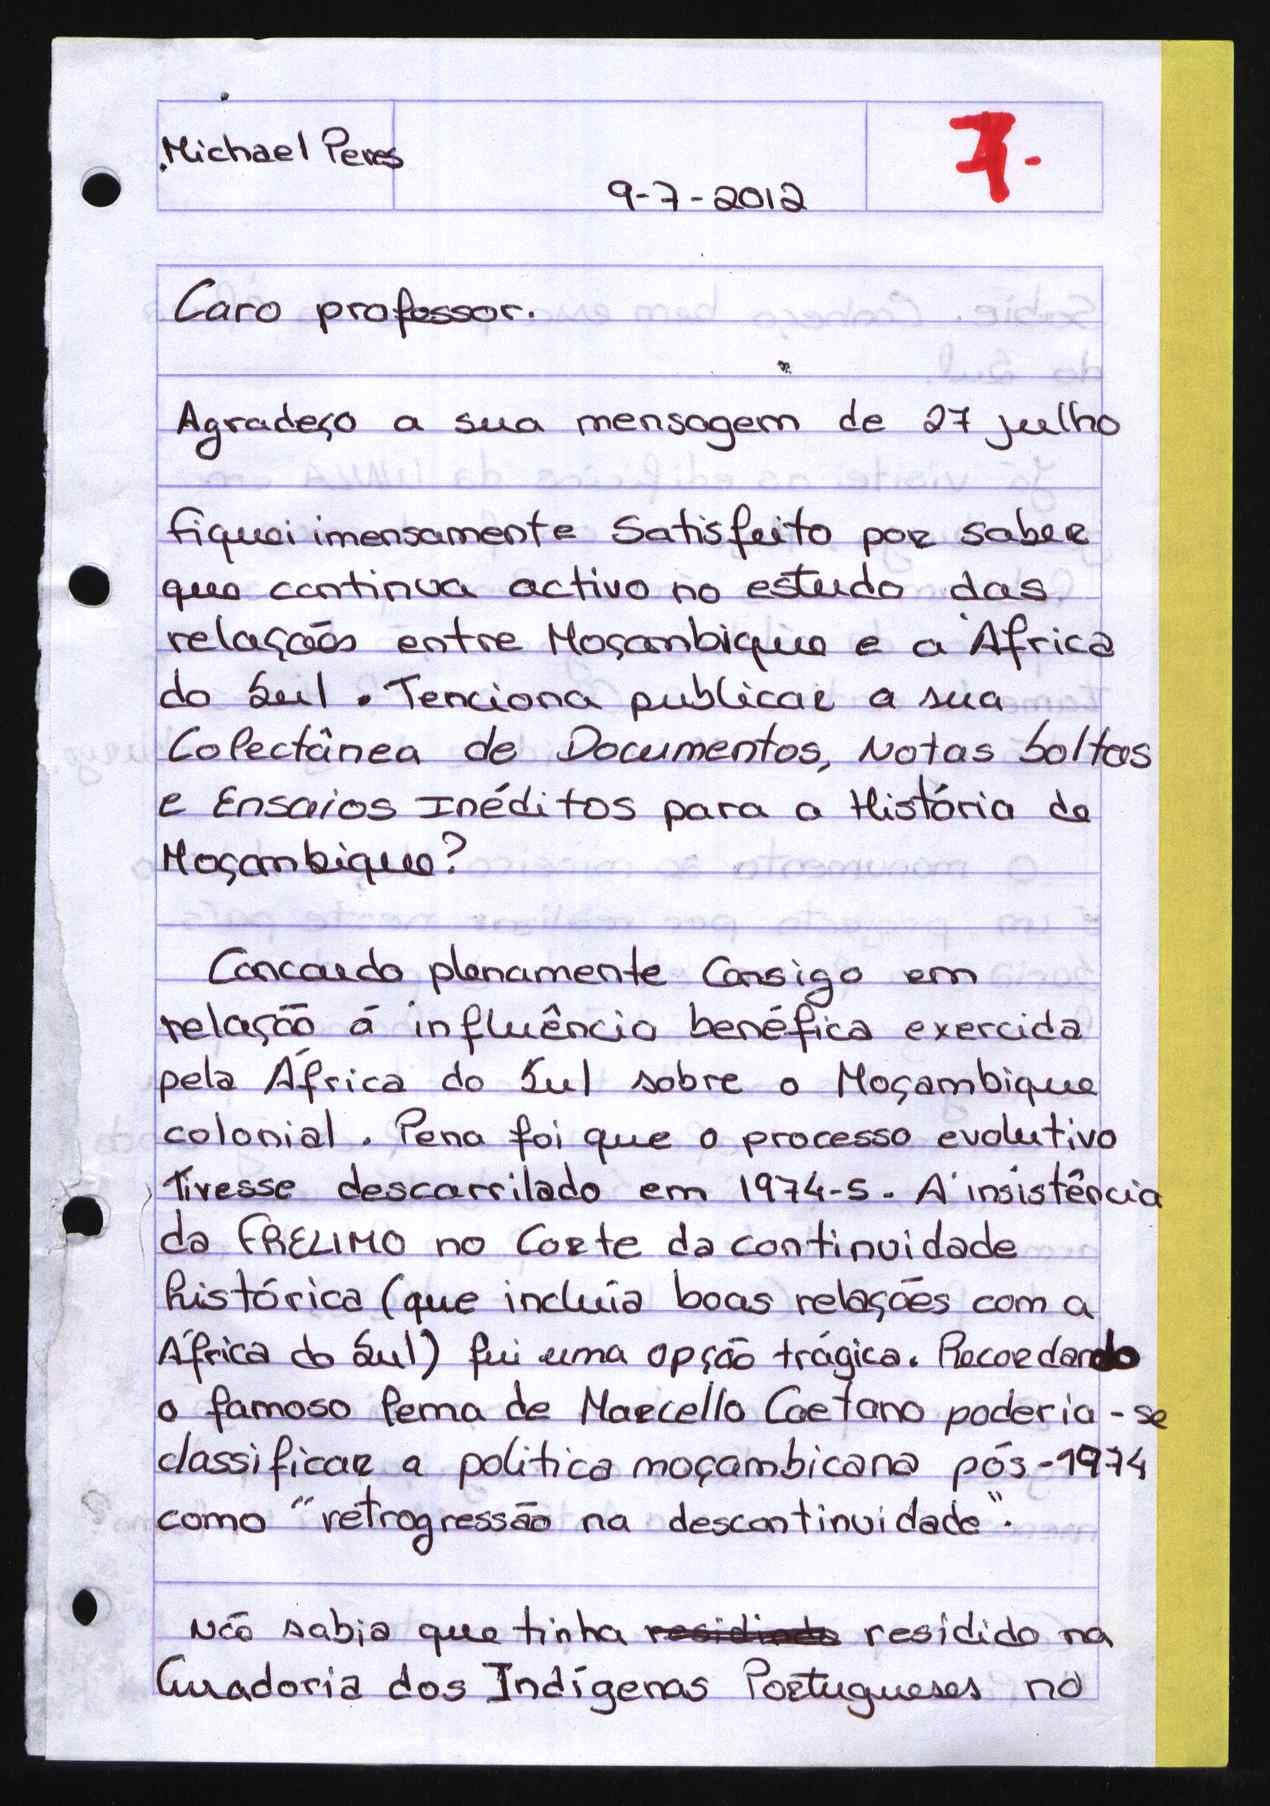 Michael Peres
7.
9-7-2012
Caro professor.
Agradeço a sua mensagem de 27 julho
fiquei imensamente satisfeito por saber
que continua activo no estudo das
relações entre Moçambique e a África
do Sul. Tenciona publicar a sua
Colectânea de Documentos, Notas Soltas
e Ensaios Inéditos para a História de
Moçambique?
Concordo plenamente consigo em
relação á influência benéfica exercida
pela África do Sul sobre o Moçambique
colonial. Pena foi que o processo evolutivo
tivesse descarrilado em 1974-5. A insistência
da FRELIMO no corte da continuidade
histórica (que incluía boas relações com a
África do Sul) fui uma opção trágica. Recordando
o famoso lema de Marcello Caetano poderia-se
classificar a politica moçambicana pós-1974
como "retrogressão na descontinuidade".
Não sabia que tinha residindo residido na
Curadoria dos Indígenas Portugueses no